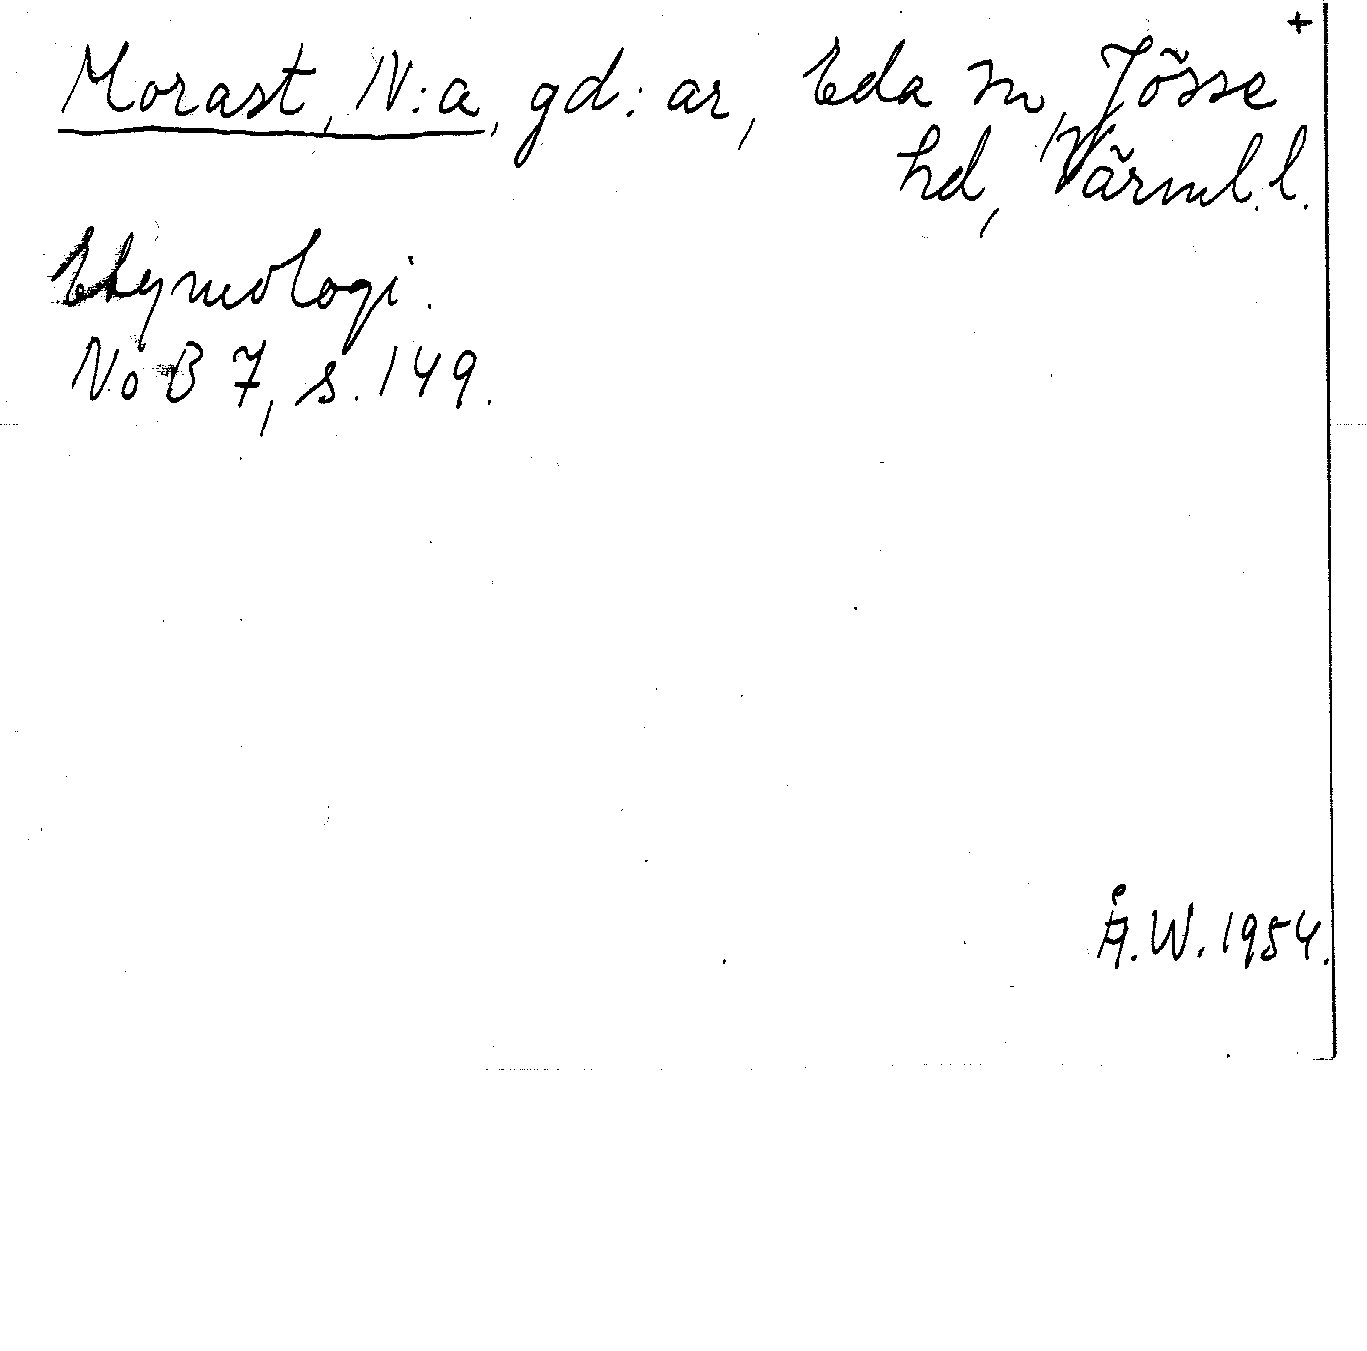 +
Morast, N:a, gd:ar, Eda sn, Jösse
hd, Värml. l.
Etymologi.
NoB 7, s. 149.
Å.W. 1954.